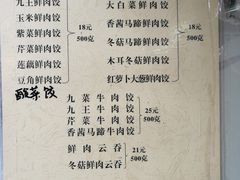 九王鲜肉饺
玉米鲜肉饺
紫菜鲜肉饺
芹菜鲜肉饺
莲藕鲜肉饺
豆角鲜肉饺
18元
500克
酸菜饺
大白菜鲜肉饺
香茜马蹄鲜肉饺
冬菇马蹄鲜肉饺
木耳冬菇鲜肉饺
红萝卜大葱鲜肉饺
18元
500克
九菜牛肉饺
九王牛肉饺
芹菜牛肉饺
香茜马蹄牛肉饺
25元
500克
鲜肉云吞
冬菇鲜肉云吞
21元
500克